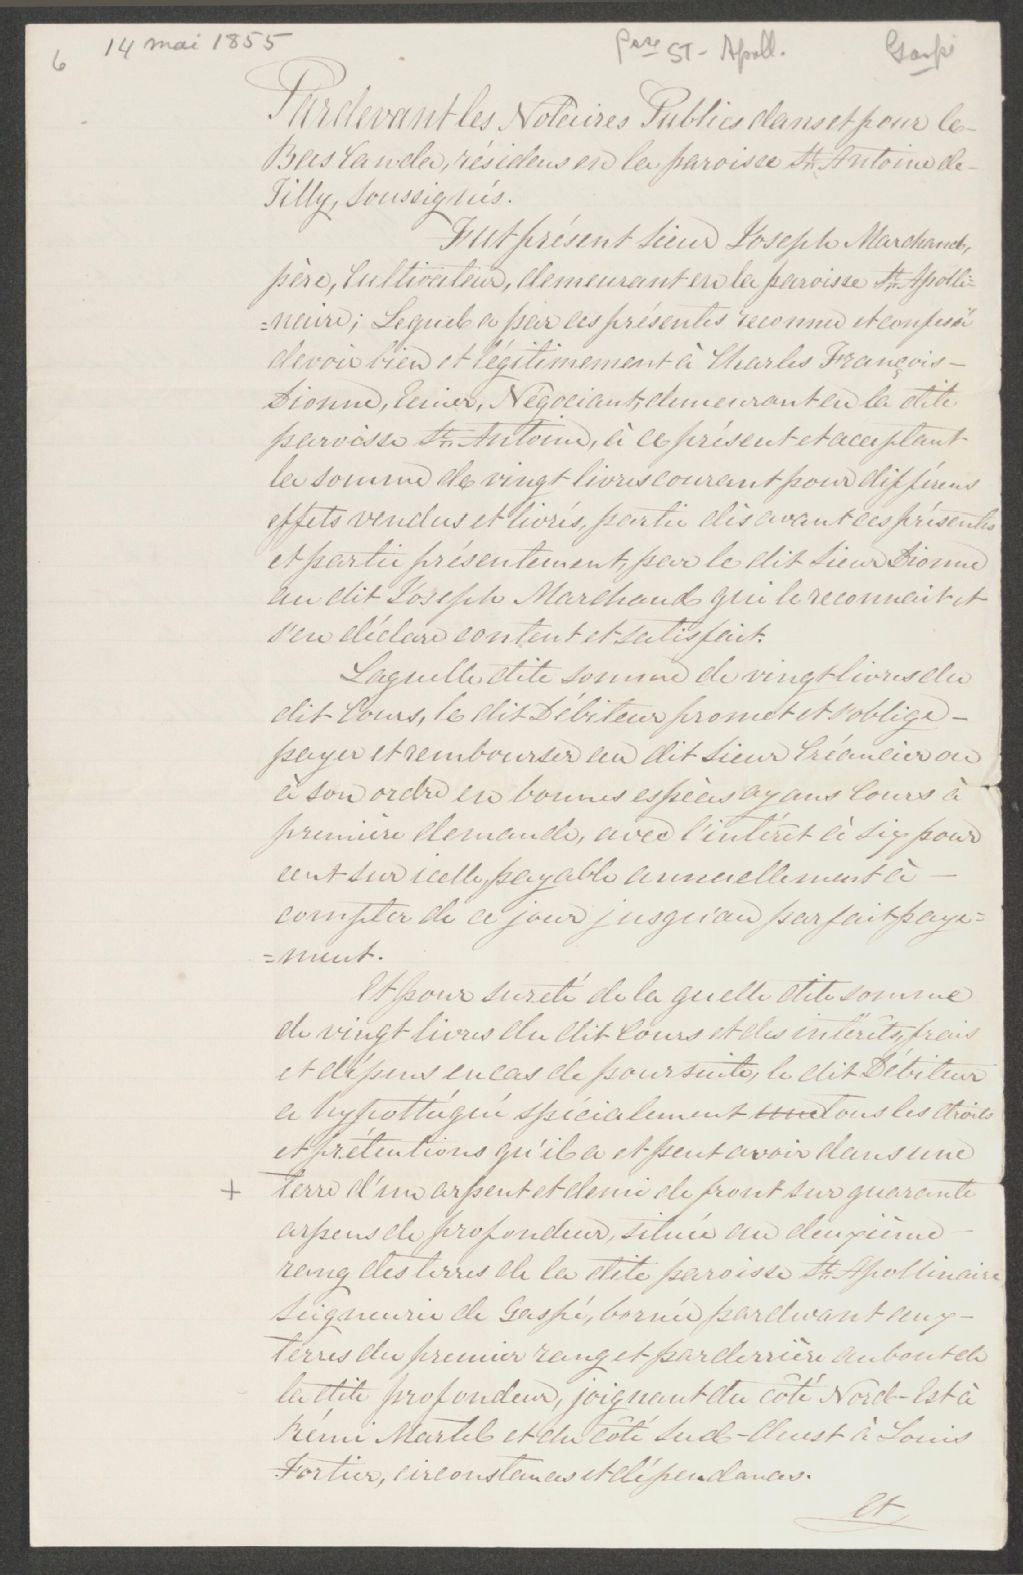 6 14 mai 1855 Psse St-Apoll. Gaspé
Pardevant les Notaires Publics dans et pour le
Bas Canada, résidens en la paroisse St. Antoine de
Tilly, soussignés.
Fut présent Sieur Joseph Marchand,
père, Cultivateur, demeurant en la paroisse St. Apolli=
=naire; Lequel a par ces présentes reconnu et confessé
devoir bien et légitimement à Charles François
Dionne, Ecuier, Négociant, demeurant en la dite
paroisse St. Antoine, à ce présent et acceptant
la somme de vingt livres courant pour différens
effets vendus et livrés, partie dès avant ces présentes
et partie présentement, par le dit Sieur Dionne
au dit Joseph Marchand qui le reconnait et
s'en déclare content et satisfait.
Laquelle dite somme de vingt livres du
dit Cours, le dit Débiteur promet et s'oblige
payer et rembourser au dit Sieur Créancier ou
à son ordre en bonnes espèces ayans Cours à
première demande, avec l'intérêt à six pour
cent sur icelle, payable annuellement à
compter de ce jour jusqu'au parfait paye=
=ment.
Et pour sureté de la quelle dite somme
de vingt livres du dit Cours et des intérêts, frais
et dépens en cas de poursuite, le dit Débiteur
a hypothéqué spécialement une tous les droits
et prétentions qu'il a et peut avoir dans une
+ terre d'un arpent et demi de front sur quarante
arpens de profondeur, située au deuxième
rang des terres de la dite paroisse St. Apollinaire
Seigneurie de Gaspé, bornée pardevant aux
terres du premier rang et parderrière au bout de
la dite profondeur, joignant du côté Nord-Est à
Rémi Martel et du côté Sud-Ouest à Louis
Fortier, circonstances et dépendances.
Et